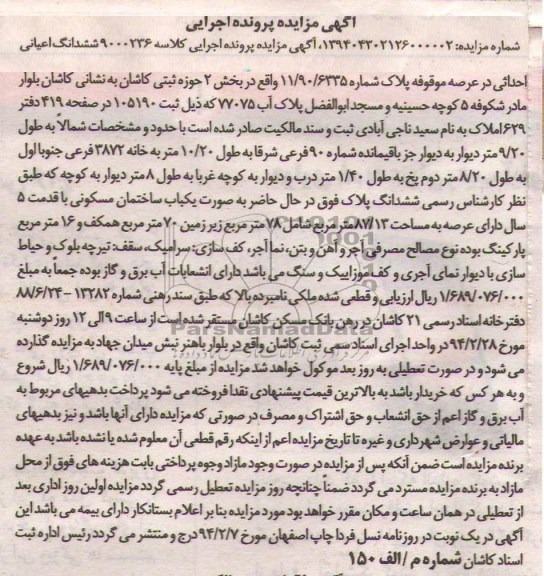 آگهی مزایده پرونده اجرایی
شماره مزایده: ۱۳۹۴۰۴۳۰۲۱۲۶۰۰۰۰۰۲، آگهی مزایده پرونده اجرایی کلاسه ۹۰۰۰۲۳۶ ششدانگ اعیانی
احداثی در عرصه موقوفه پلاک شماره ۱۱/۹۰/۶۳۳۵ واقع در بخش ۲ حوزه ثبتی کاشان به نشانی کاشان بلوار
مادر شکوفه ۵ کوچه حسینیه و مسجد ابوالفضل پلاک آب ۷۷۰۷۵ که ذیل ثبت ۱۰۵۱۹۰ در صفحه ۴۱۹ دفتر
۶۲۹ املاک به نام سعید ناجی آبادی ثبت و سند مالکیت صادر شده است با حدود و مشخصات شمالاً به طول
۹/۲۰ متر دیوار به دیوار جز باقیمانده شماره ۹۰ فرعی شرقا به طول ۱۰/۲۰ متر به خانه ۳۸۷۲ فرعی جنوبا اول
به طول ۸/۲۰ متر دوم پخ به طول ۱/۴۰ متر درب و دیوار به کوچه غربا به طول ۸ متر دیوار به کوچه که طبق
نظر کارشناس رسمی ششدانگ پلاک فوق در حال حاضر به صورت یکباب ساختمان مسکونی با قدمت ۵
سال دارای عرصه به مساحت ۸۷/۱۳ متر مربع شامل ۷۸ متر مربع زیر زمین ۷۰ متر مربع همکف و ۱۶ متر مربع
پارکینگ بوده نوع مصالح مصرفی آجر و آهن و بتن، نما آجر، کف سازی: سرامیک، سقف: تیرچه بلوک و حیاط
سازی با دیوار نمای آجری و کف موزاییک و سنگ می باشد دارای انشعابات آب برق و گاز بوده جمعاً به مبلغ
۱/۶۸۹/۰۷۶/۰۰۰ ریال ارزیابی و قطعی شده ملکی نامبرده بالا که طبق سند رهنی شماره ۱۳۲۸۲ - ۸۸/۶/۲۴
دفترخانه اسناد رسمی ۲۱ کاشان در رهن بانک مسکن کاشان مستقر شده است از ساعت ۹ الی ۱۲ روز دوشنبه
مورخ ۹۴/۲/۲۸ در واحد اجرای اسناد رسمی ثبت کاشان واقع در بلوار باهنر نبش میدان جهاد به مزایده گذارده
می شود و در صورت تعطیلی به روز بعد موکول خواهد شد مزایده از مبلغ پایه ۱/۶۸۹/۰۷۶/۰۰۰ ریال شروع
و به هر کس که خریدار باشد به بالاترین قیمت پیشنهادی نقدا فروخته می شود پرداخت بدهیهای مربوط به
آب برق و گاز اعم از حق انشعاب و حق اشتراک و مصرف در صورتی که مزایده دارای آنها باشد و نیز بدهیهای
مالیاتی و عوارض شهرداری و غیره تا تاریخ مزایده اعم از اینکه رقم قطعی آن معلوم شده یا نشده باشد به عهده
برنده مزایده است ضمن آنکه پس از مزایده در صورت وجود مازاد وجوه پرداختی بابت هزینه های فوق از محل
مازاد به برنده مزایده مسترد می گردد ضمناً چنانچه روز مزایده تعطیل رسمی گردد مزایده اولین روز اداری بعد
از تعطیلی در همان ساعت و مکان مقرر خواهد بود مورد مزایده بنا بر اعلام بستانکار دارای بیمه می باشد این
آگهی در یک نوبت در روزنامه نسل فردا چاپ اصفهان مورخ ۹۴/۲/۷ درج و منتشر می گردد رئیس اداره ثبت
اسناد کاشان شماره م / الف ۱۵۰
ParsNamadData